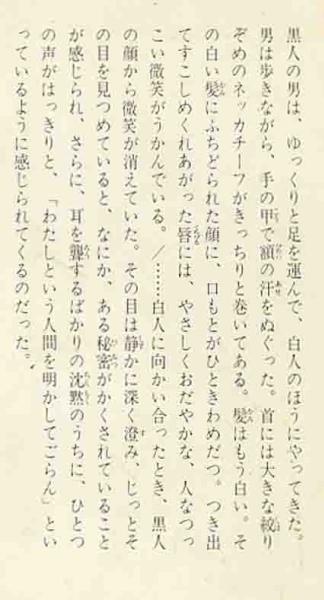 黒人の男は、ゆっくりと足を運んで、白人のほうにやってきた。
男は歩きながら、手の甲で額の汗をぬぐった。首には大きな絞り
ぞめのネッカチーフがきっちりと巻いてある。髪はもう白い。そ
の白い髪にふちどられた顔に、口もとがひときわめだつ。つき出
てすこしめくれあがった唇には、やさしくおだやかな、人なつっ
こい微笑がうかんでいる。／……白人に向かい合ったとき、黒人
の顔から微笑が消えていた。その目は静かに深く澄み、じっとそ
の目を見つめていると、なにか、ある秘密がかくされていること
が感じられ、さらに、耳を聾するばかりの沈黙のうちに、ひとつ
の声がはっきりと、「わたしという人間を明かしてごらん」とい
っているように感じられてくるのだった。